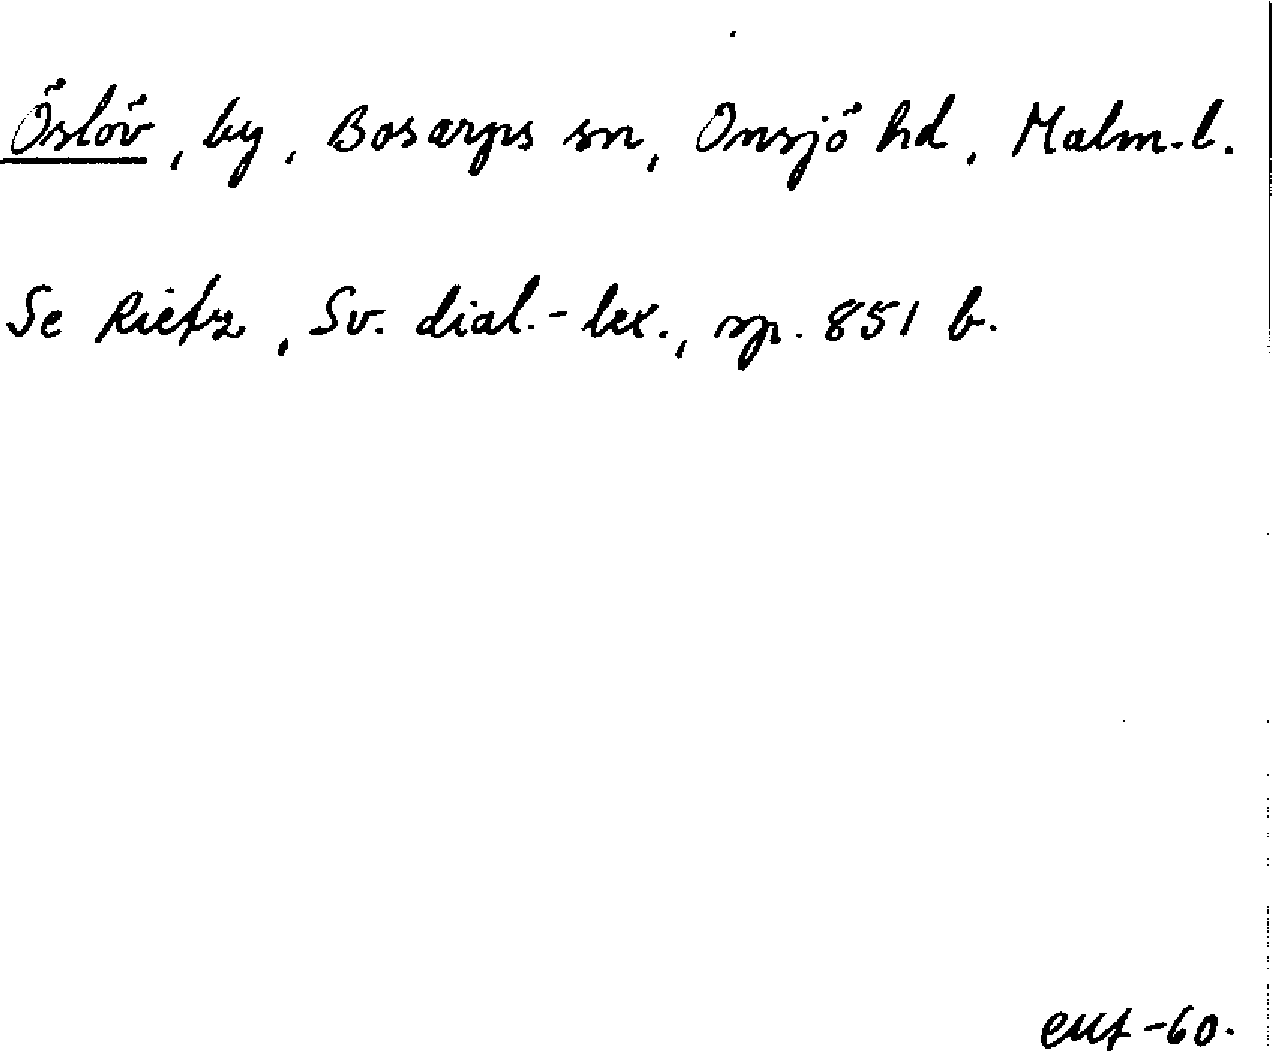 Öslöv, by, Bosarps sn, Onsjö hd, Malm. l.
Se Rietz, Sv. dial.-lex., sp. 851 b.
-60.